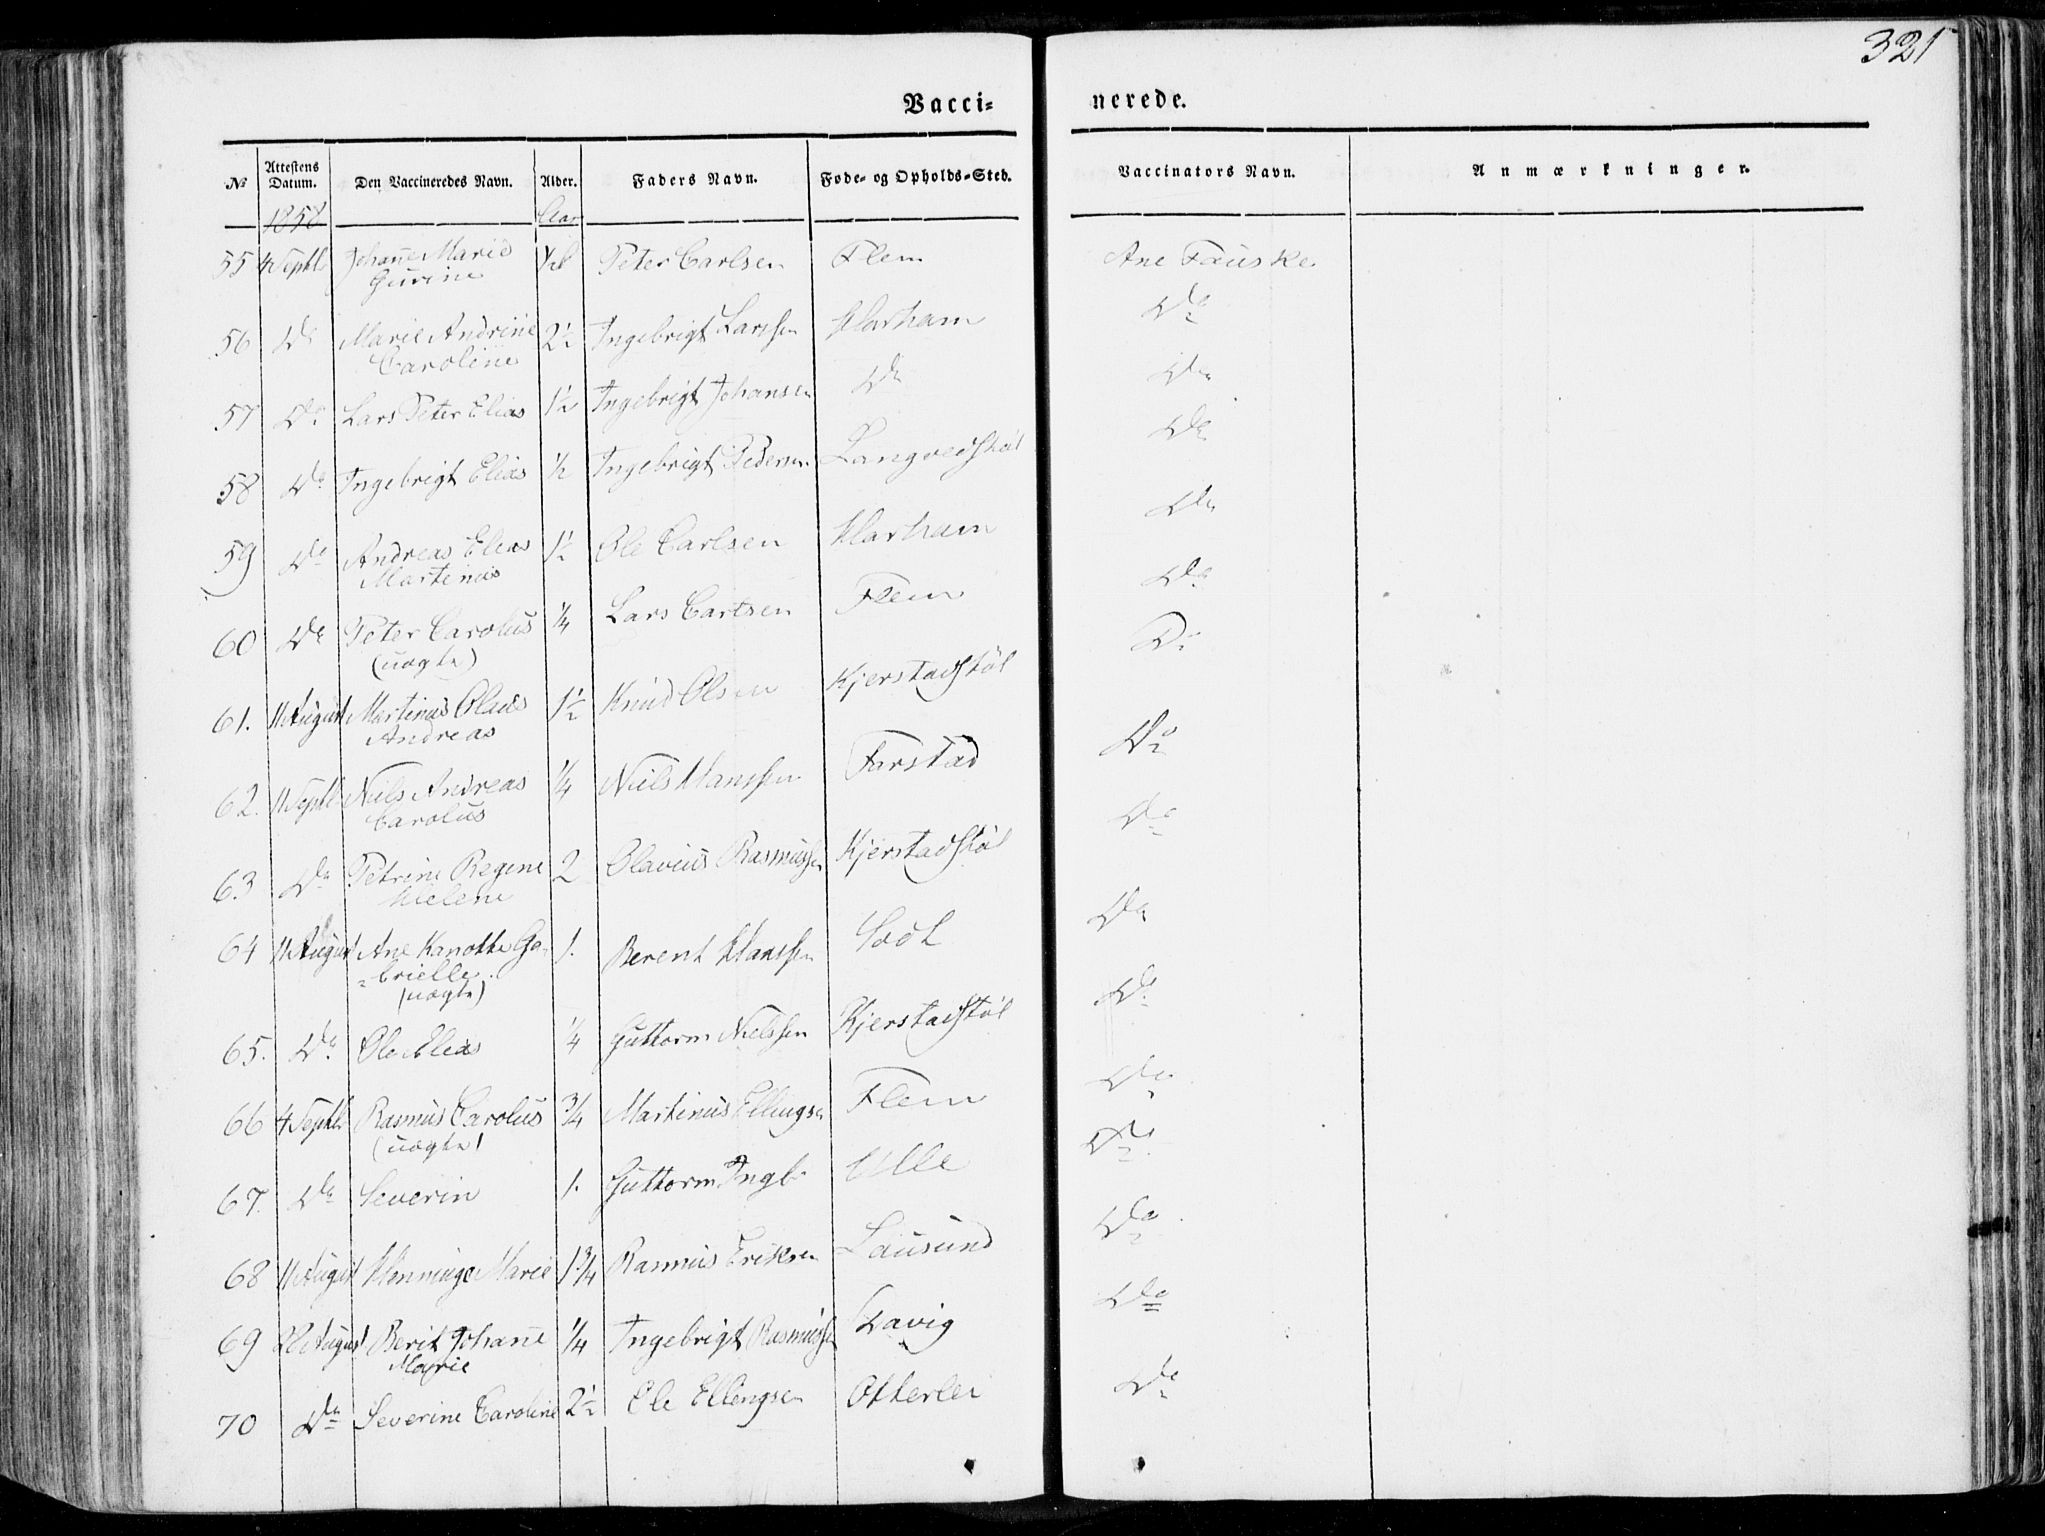 321
Vaccinerede.
No Attestens Datum. Den Vaccineredes Navn. Alder. Faders Navn. Føde- og Opholds-Sted. Vaccinators Navn. Anmærkninger.
1858 Aar
55 4 Septbr Johanne Marie ½ Peter Carlsen Flem Ane Fauske
Gurine
56 Do Marie Andrine 2½ Ingebrigt Larssen Harham Do
Caroline
57 Do Lars Peter Elias 1½ Ingebrigt Johansen Do Do
58 Do Ingebrigt Elias ½ Ingebrigt Pedersen Langvedstøl Do
59 Do Andreas Elias 1½ Ole Carlsen Harham Do
Martinus
60 Do Peter Carolus ¼ Lars Carlsen Flem Do
(uægte)
61. 11 August Martinus Olaus 1½ Knud Olsen Kjerstadstøl Do
Andreas
62. 11 Septbr Niels Andreas ¼ Niels Hanssen Farstad Do
Carolus
63 Do Petrine Regine 2 Olavius Rasmussen Kjerstadstøl Do
Helene
64 11 August Ane Kanotte Ga- 1. Berent Hanssen Do
=brielle.
(uægte)
65. Do Ole Elias ¼ Guttorm Nielssen Kjerstadstøl Do
66 4 Septbr Rasmus Carolus ¾ Martinus Ellingsen Flem Do
(uægte)
67. Do Severin 1. Guttorm Ingb. Ulle Do
68 11 August Henninge Marie 1¾ Rasmus Eriksen Lausund Do
69 22 August Berit Johanne ¼ Ingebrigt Rasmussen Davig Do
Marie
70 Do Severine Caroline 2½ Ole Ellingsen Otterlei Do